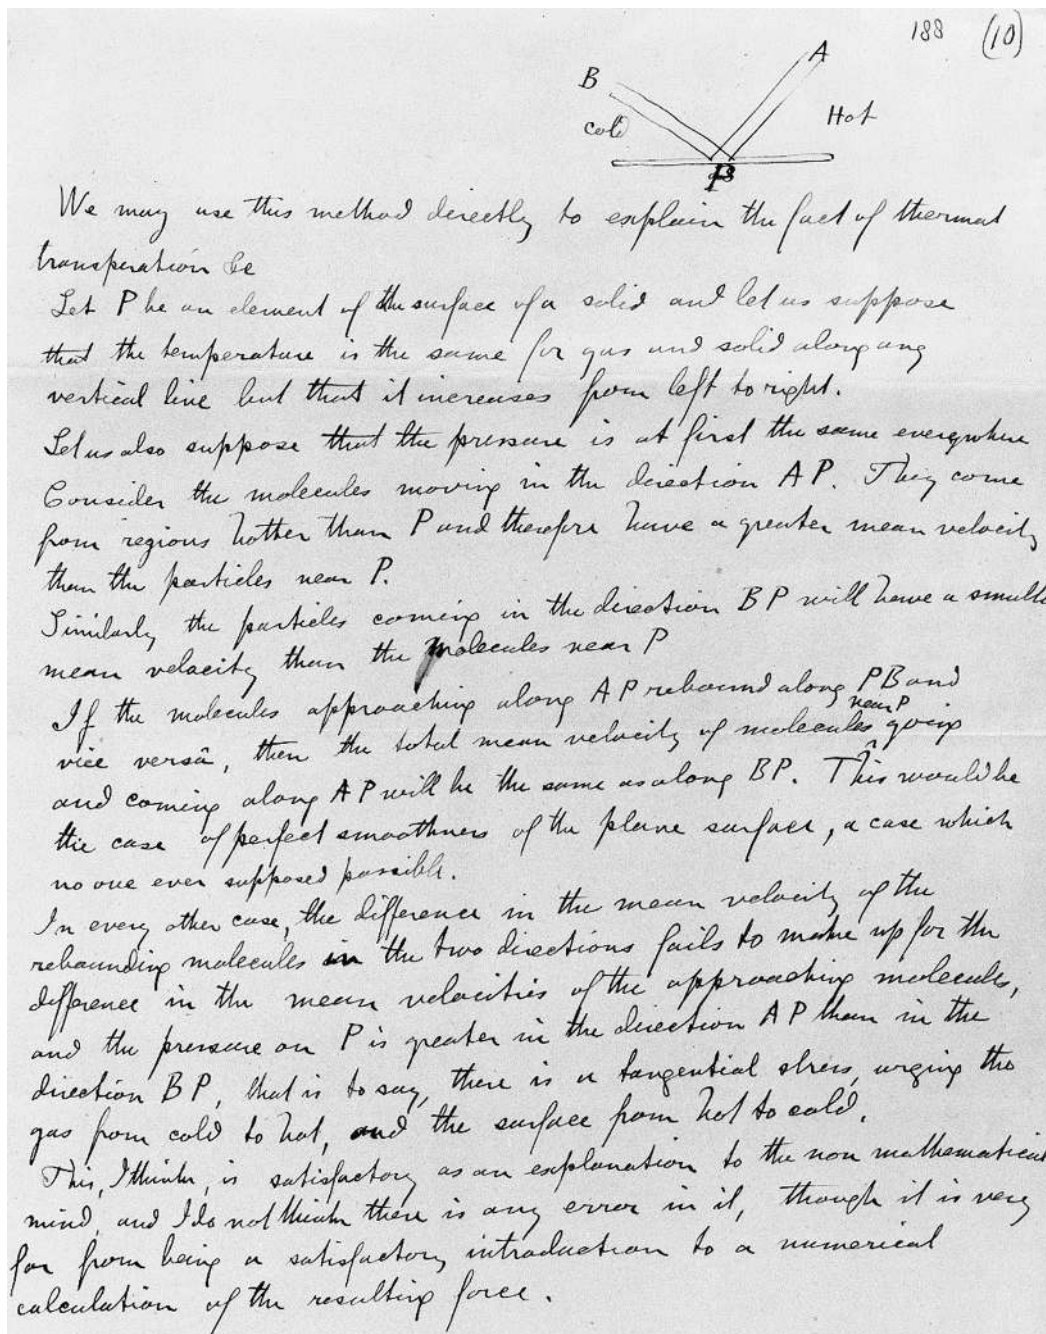 188 (10)
A
B
Cold
Hot
P
We may use this method directly to explain the fact of thermal
transpiration &c
Let P be an element of the surface of a solid and let us suppose
that the temperature is the same for gas and solid along any
vertical line but that it increases from left to right.
Let us also suppose that the pressure is at first the same everywhere
Consider the molecules moving in the direction AP. They come
from regions hotter than P and therefore have a greater mean velocity
than the particles near P.
Similarly the particles coming in the direction BP will have a smalle
mean velocity than the molecules near P
If the molecules approaching along AP rebound along PB and
vice versâ, then the total mean velocity of molecules near P going
and coming along AP will be the same as along BP. This would be
the case of perfect smoothness of the plane surface, a case which
no one ever supposed possible.
In every other case, the difference in the mean velocity of the
rebounding molecules in the two directions fails to make up for the
difference in the mean velocities of the approaching molecules,
and the pressure on P is greater in the direction AP than in the
direction BP, that is to say, there is a tangential stress, urging the
gas from cold to hot, and the surface from hot to cold.
This, I think, is satisfactory as an explanation to the non mathematical
mind, and I do not think there is any error in it, though it is very
far from being a satisfactory introduction to a numerical
calculation of the resulting force.